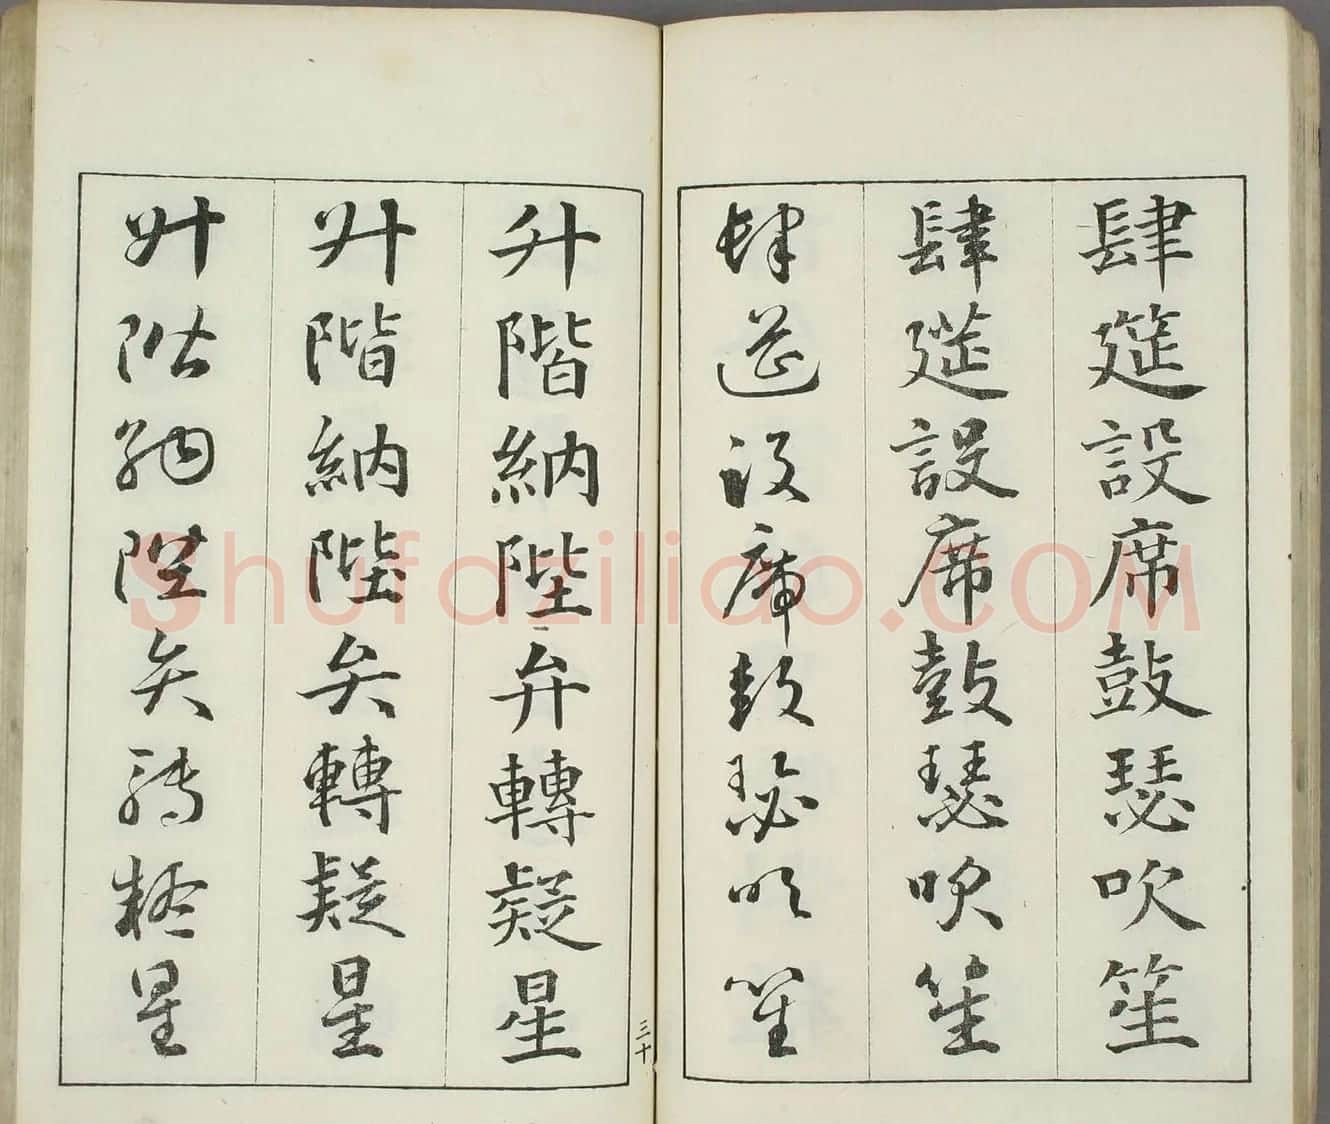 肆筵設席鼓瑟吹笙
肆筵設席鼓瑟吹笙
肆筵設席鼓瑟吹笙
升階納陛弁轉疑星
升階納陛弁轉疑星
升階納陛弁轉疑星
三十
Shufaziliao.COM